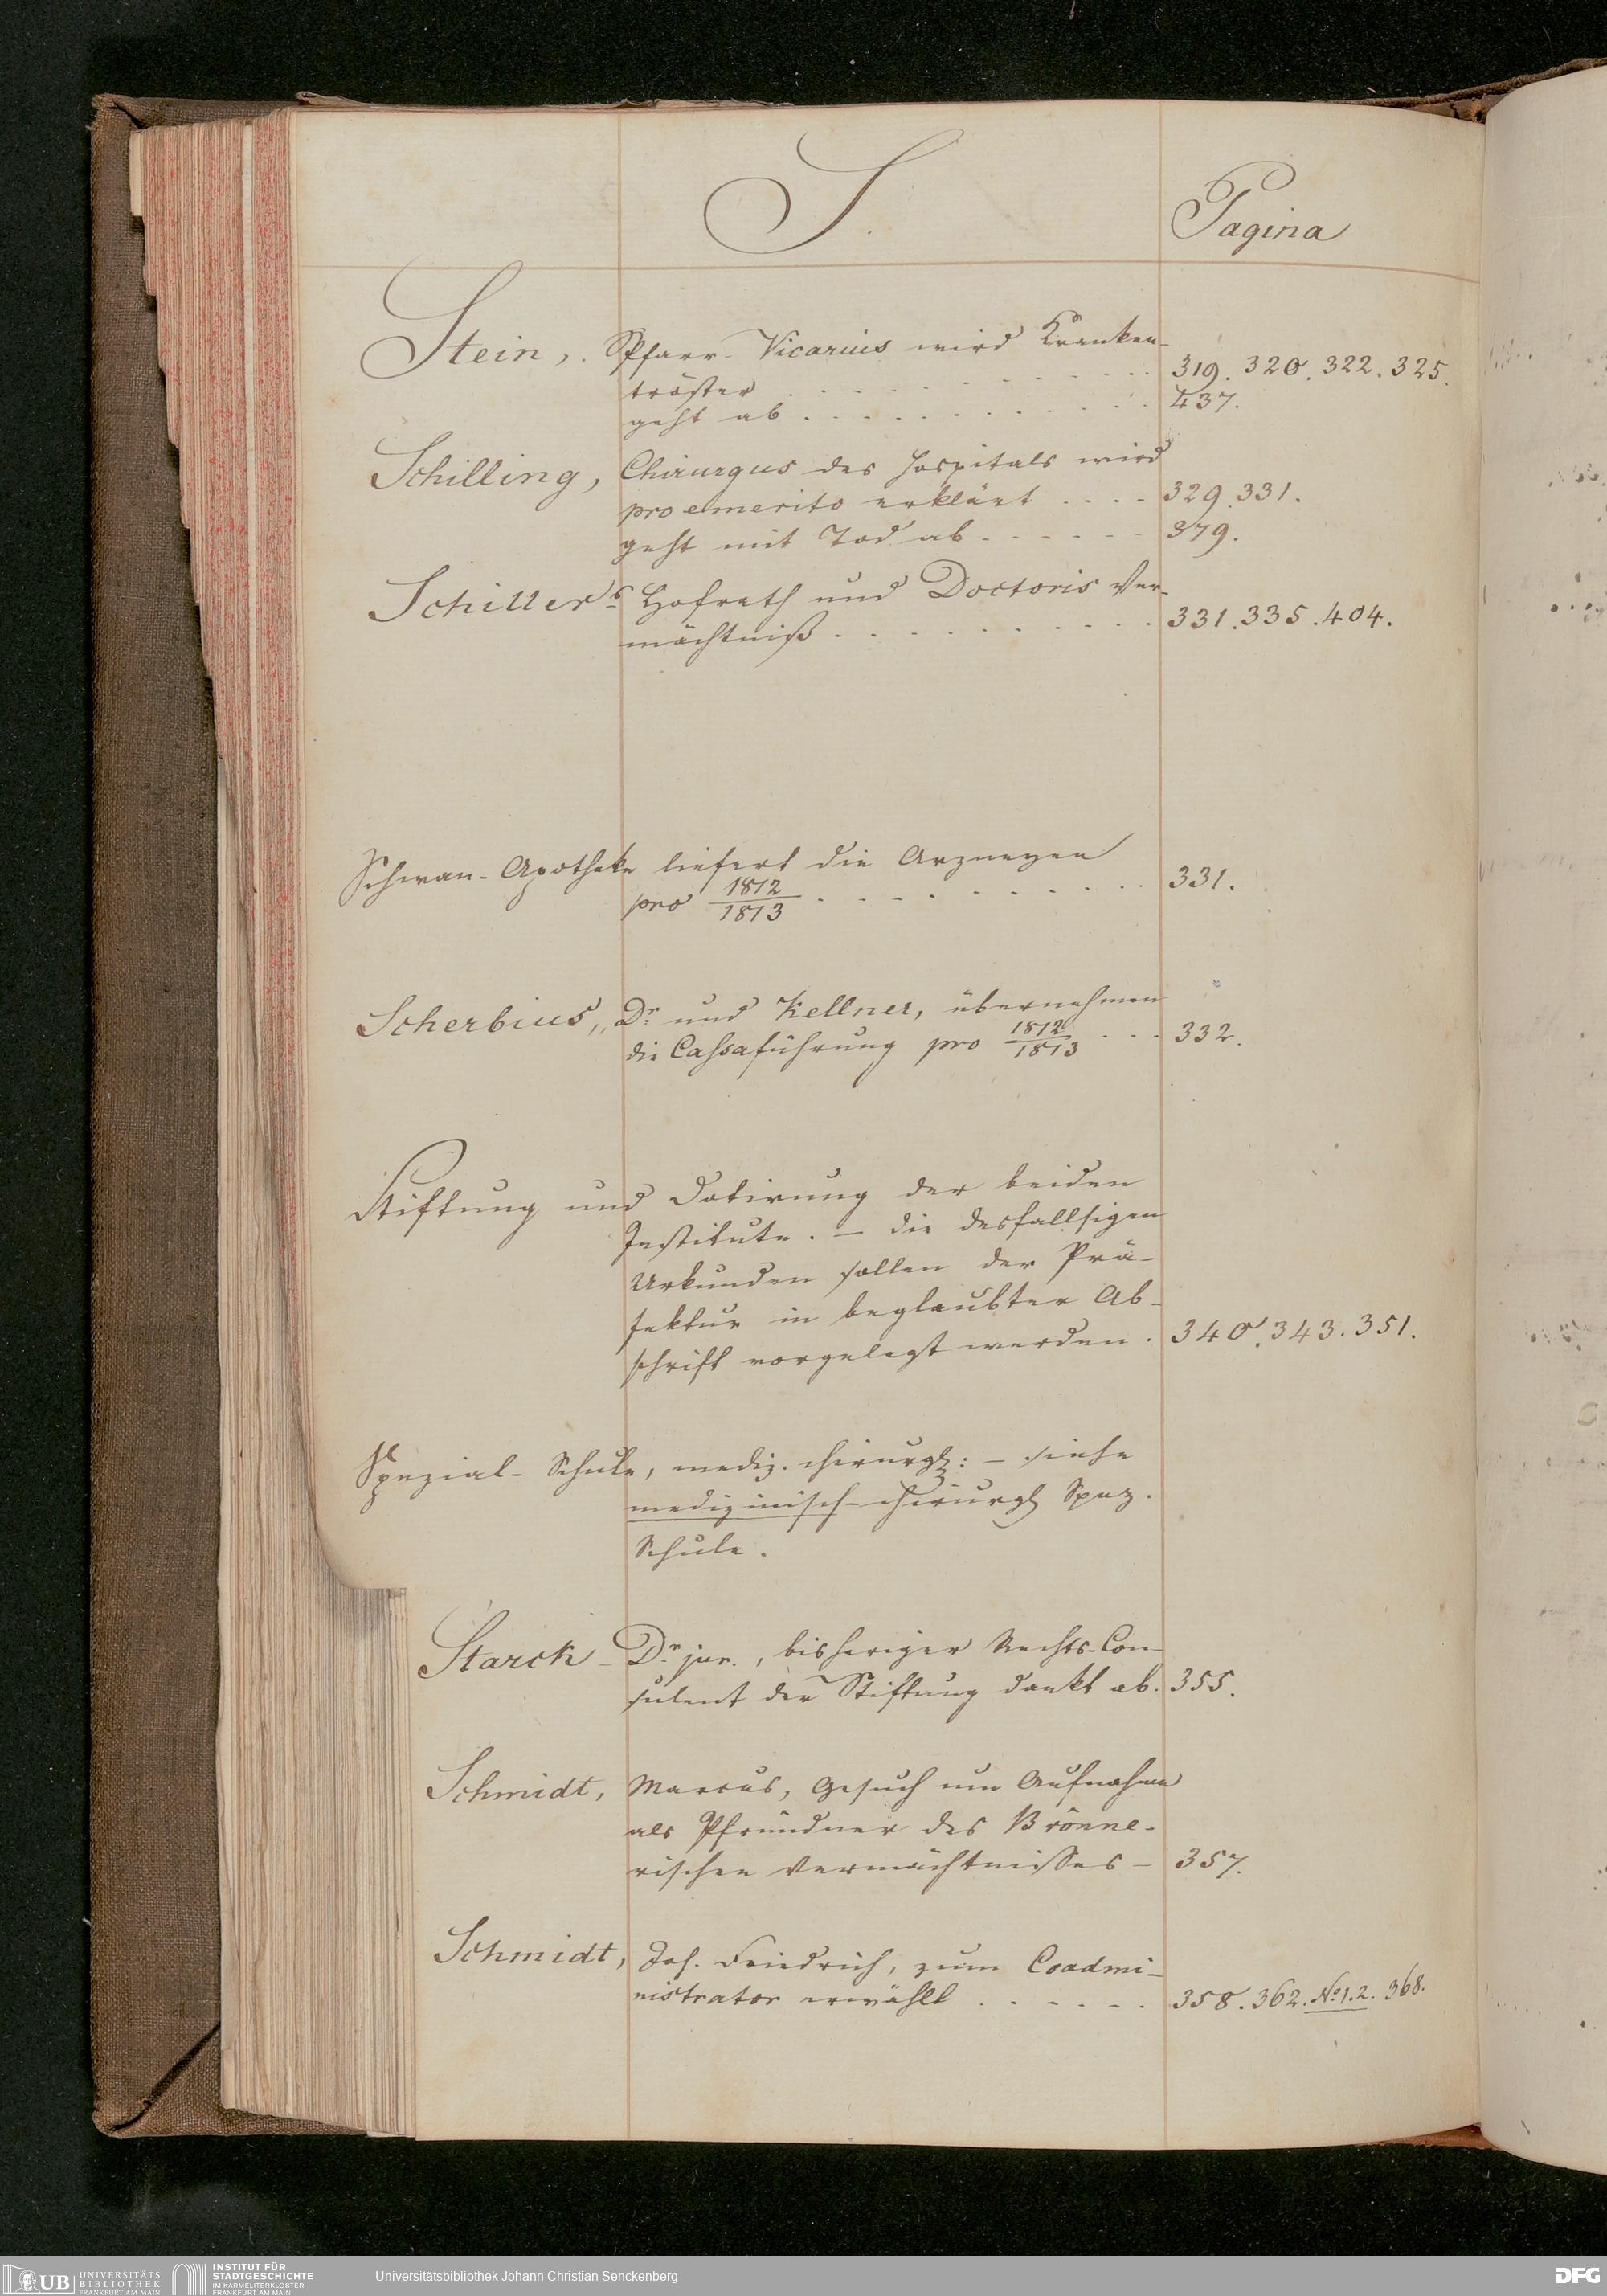 S.
Pagina
Stein, Pfarr-Vicarius wird Kranken-
tröster . . . . . . . . . . 319. 320. 322. 325.
geht ab . . . . . . . . . . 437.
Schilling, Chirurgus des Hospitals wird
pro emerito erklärt . . . . 329. 331.
geht mit Tod ab . . . . . . 379.
Schillers Hofrath und Doctoris Ver-
mächtniß . . . . . . . . . . 331. 335. 404.
Schwan-Apotheke liefert die Arzneyen
pro 1812/1813 . . . . . . . . . 331.
Scherbius, Dr. und Kellner, übernehmen
die Cassaführung pro 1812/1813 . . . 332.
Stiftung und Dotirung der beiden
Institute. – die desfallsigen
Urkunden sollen der Prä-
fektur in beglaubter Ab-
schrift vorgelegt werden. 340. 343. 351.
Spezial-Schule, mediz. chirurg: – siehe
medizinisch-chirurg Spez.
Schule.
Starck – Dr. jur., bisheriger Rechts-Con-
sulent der Stiftung dankt ab. 355.
Schmidt, Marcus, Gesuch um Aufnahme
als Pfründner des Brönne-
rischen Vermächtnisses – 357.
Schmidt, Joh. Friedrich, zum Coadmi-
nistrator erwählt . . . . . . 358. 362. No. 1. 2. 368.
UB UNIVERSITÄTS
BIBLIOTHEK
FRANKFURT AM MAIN
INSTITUT FÜR
STADTGESCHICHTE
IM KARMELITERKLOSTER
FRANKFURT AM MAIN
Universitätsbibliothek Johann Christian Senckenberg
DFG